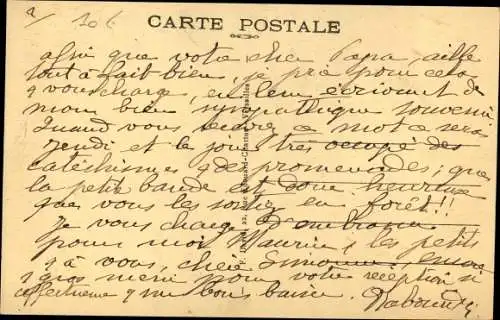 10 f
CARTE POSTALE
afin que votre cher Papa, aille
tout à fait bien, je prie pour cela
& vous charge, en leur écrivant de
mon bien sympathique souvenir.
Quand vous recevrez ce mot ce sera
Jeudi et le jour très occupé des
catéchismes & des promenades; que
la petite bande est donc heureuse
que vous les sortiez en forêt!!
Je vous charge d'embrasser
pour moi Maurice, & les petits
& à vous, chère Simonne, encore
& gros merci pour votre réception si
affectueuse & un bon baiser.